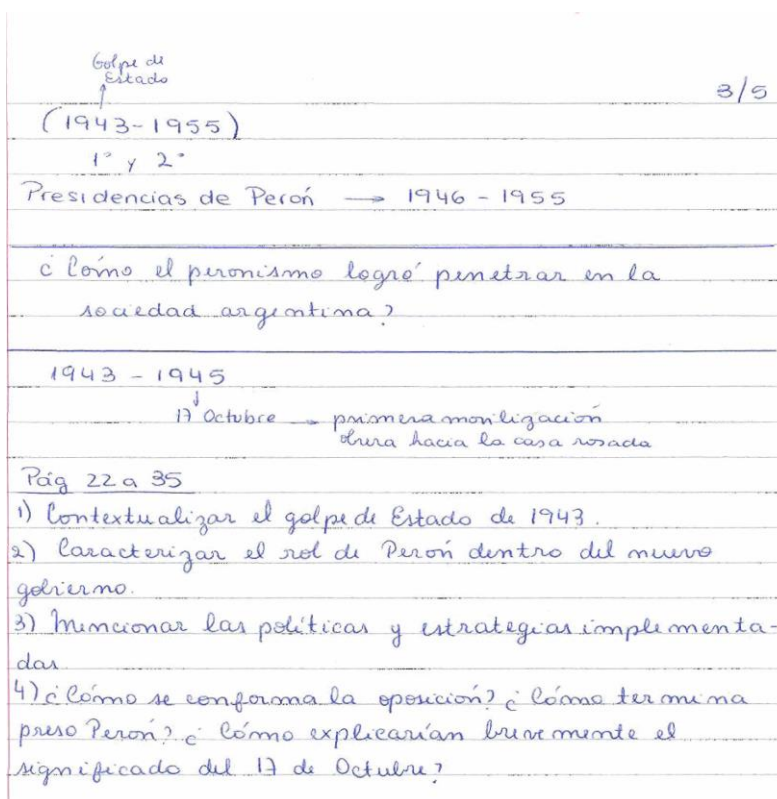 Golpe de
Estado
3/5
(1943-1955)
1° y 2°
Presidencias de Perón → 1946 - 1955
¿Cómo el peronismo logró penetrar en la
sociedad argentina?
1943 - 1945
↓
17 Octubre → primera movilización
obrera hacia la casa rosada
Pág 22 a 35
1) Contextualizar el golpe de Estado de 1943.
2) Caracterizar el rol de Perón dentro del nuevo
gobierno.
3) Mencionar las políticas y estrategias implementa-
das
4) ¿Cómo se conforma la oposición? ¿Cómo termina
preso Perón? ¿Cómo explicarían brevemente el
significado del 17 de Octubre?